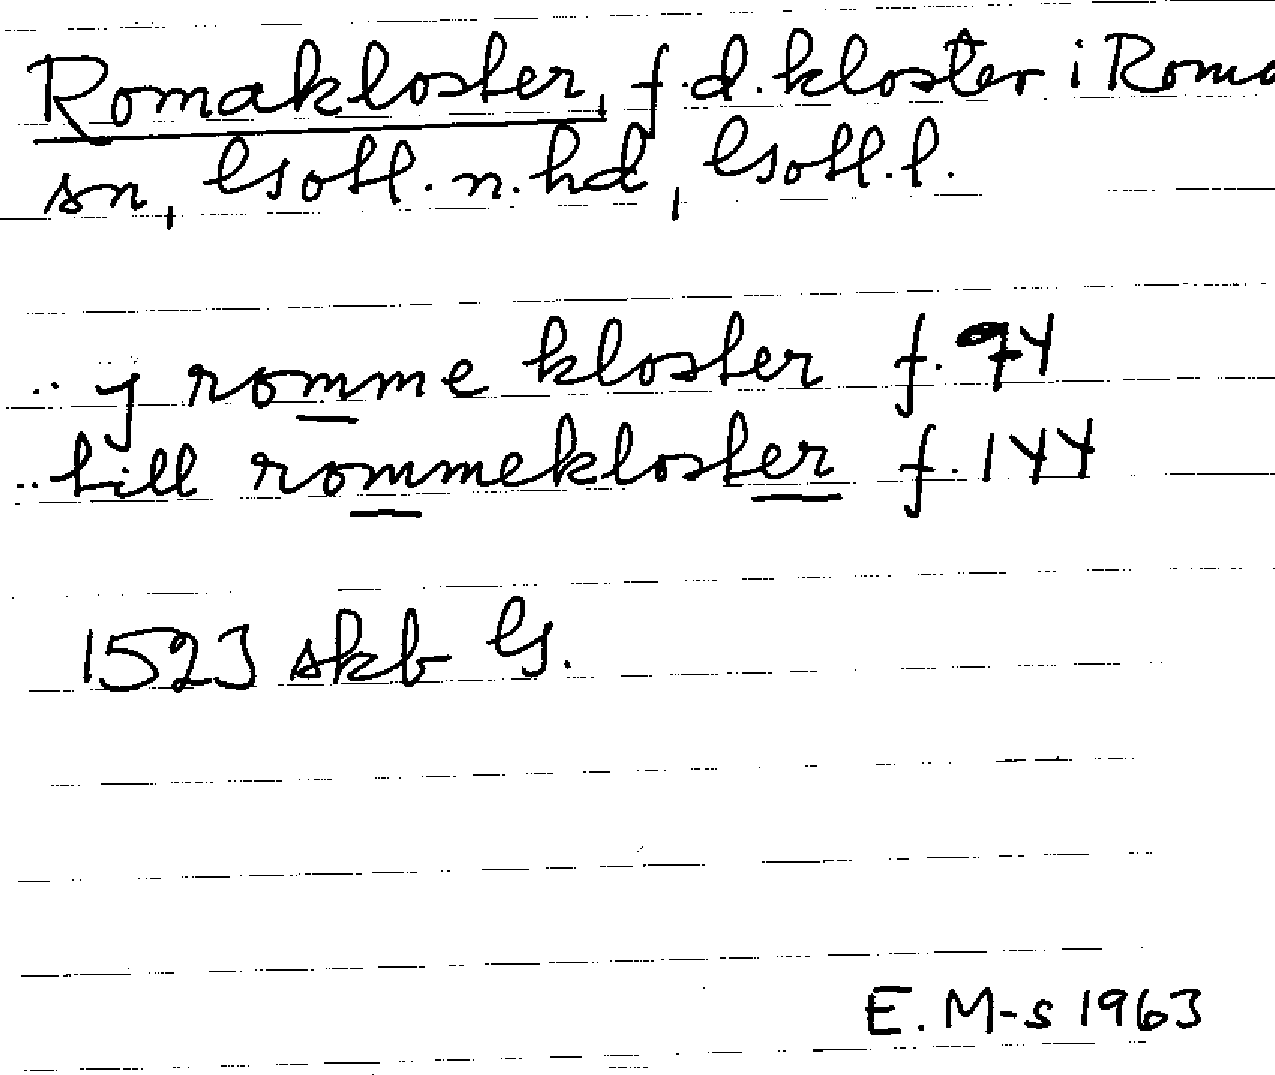 Romakloster, f.d. kloster i Roma
sn, Gotl. n. hd, Gotl. l.
.. y romme kloster f. 94
.. till rommekloster f. 144
1523 skb G.
E. M-s 1963